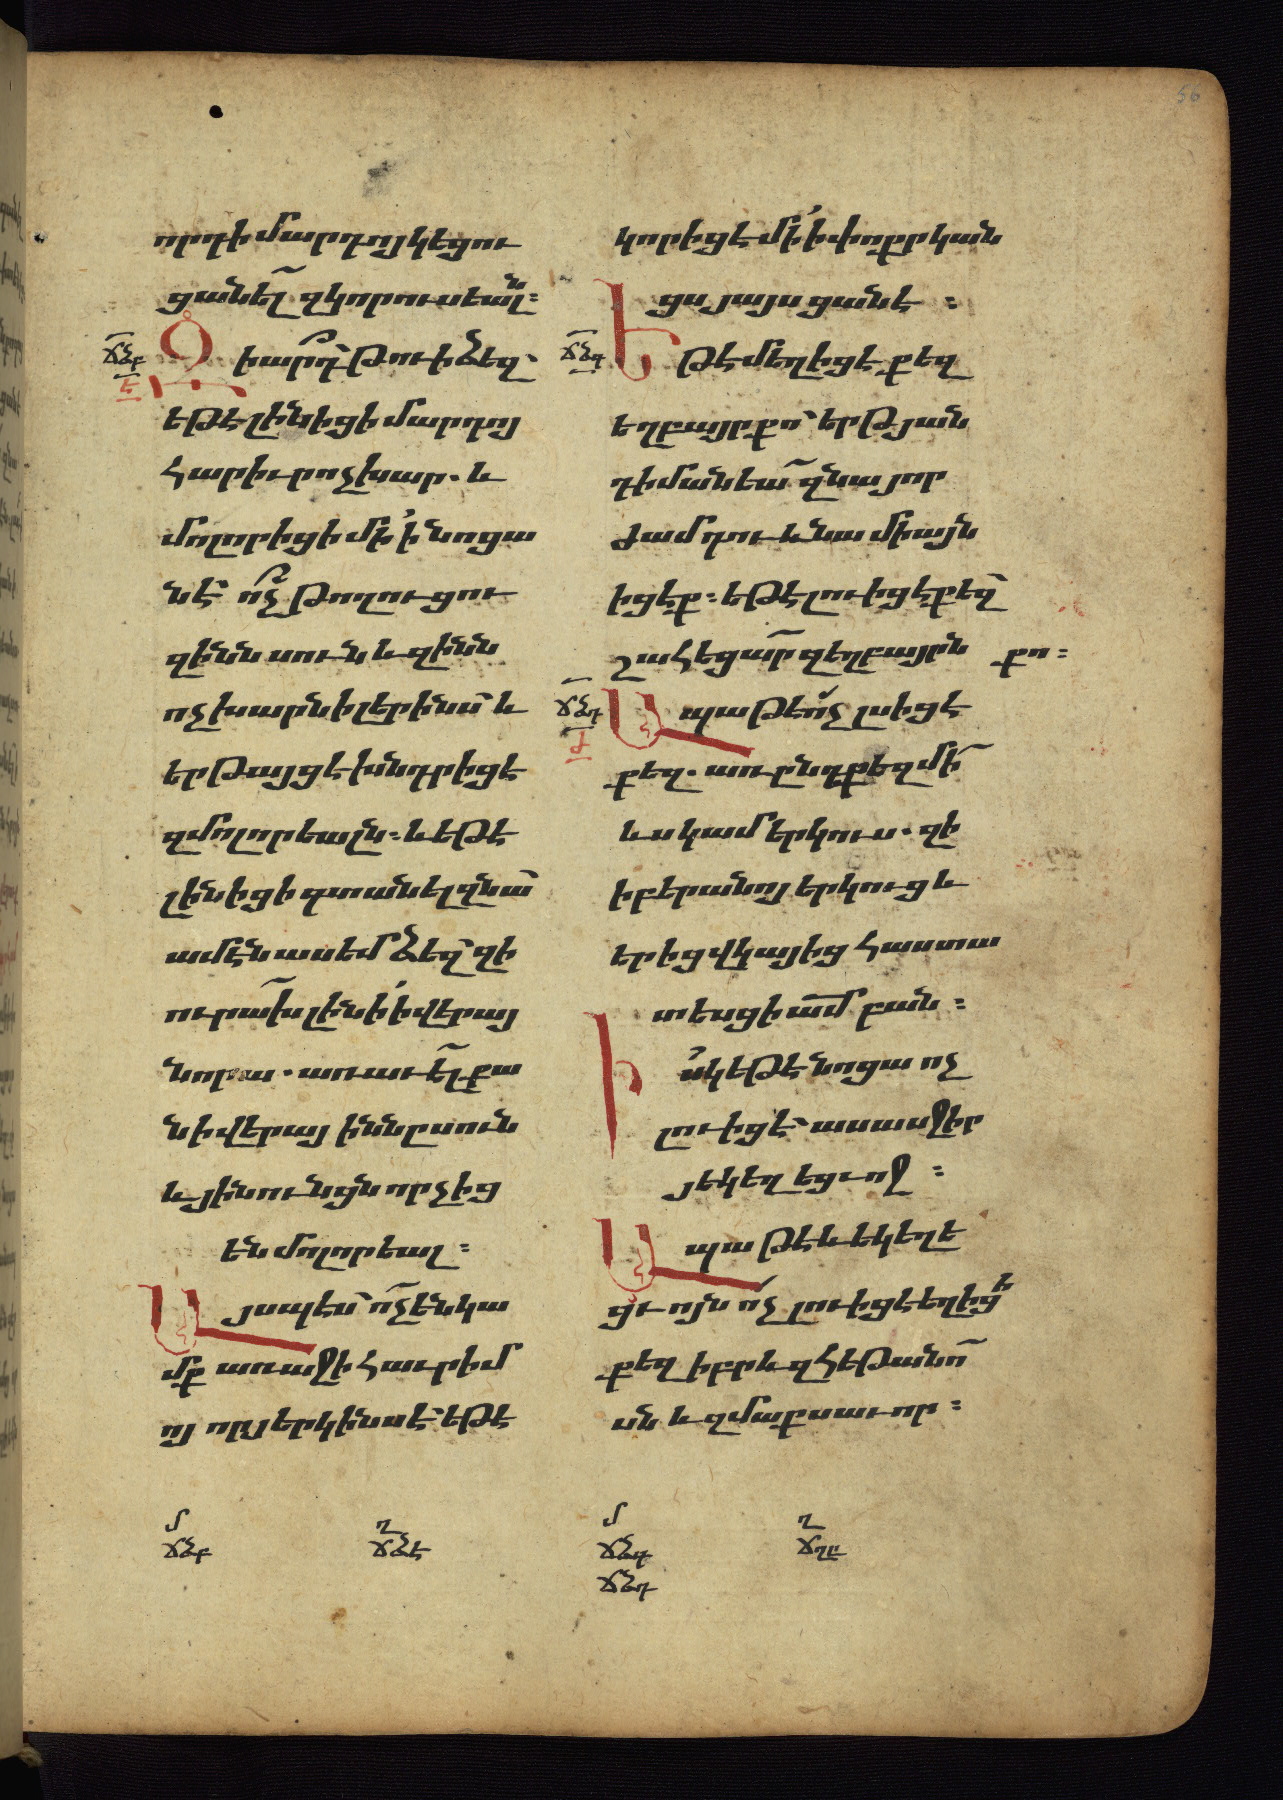 56
որդի մարդոյ կեցու
ցանել զկորուսեալն։
ՃՁԲ
Է
Զիարդ թուի ձեզ՝
եթէ լինիցի մարդոյ
հարիւր ոչխար. և
մոլորիցի մի ի նոցա
նէ՝ ոչ թողուցու
զիննսուն և զինն
ոչխարն ի լերինս՝ և
երթայցէ խնդրիցէ
զմոլորեալն։ և եթէ
լինիցի գտանել զնա՝
ամէն ասեմ ձեզ՝ զի
ուրախ լինի ի վերայ
նորա. առաւել քա
ն ի վերայ իննըսուն
և յինունցն որ չից
են մոլորեալ։
Այսպէս՝ ոչ են կա
մք առաջի հաւր իմ
ոյ որ յերկինս է՝ եթէ
կորիցէ մի ի փոքրկան
ցս յայսցանէ։
ՃՁԳ
Եթէ մեղիցէ քեզ
եղբայր քո՝ երթ յան
դիմանեա զնա յոր
ժամ դու և նա միայն
իցէք։ եթէ լուիցէ քեզ՝
շահեցար զեղբայրն քո։
ՃՁԴ
Ժ
Ապա թէ ոչ լսիցէ
քեզ. առ ընդ քեզ մի
ևս կամ երկուս. զի
ի բերանոյ երկուց և
երից վկայից հաստա
տեսցի ամ բան։
Իսկ եթէ նոցա ոչ
լուիցէ՝ ասասջիր
յեկեղեցւոջ։
Ապա թէ և եկեղե
ցւոյն ոչ լուիցէ եղիցի
քեզ իբրև զհեթանո
սն և զմաքսաւոր։
մ
ՃՁԲ
ղ
ՃՁԷ
մ
ՃՁԳ
ՃՁԴ
ղ
ՃՂԸ